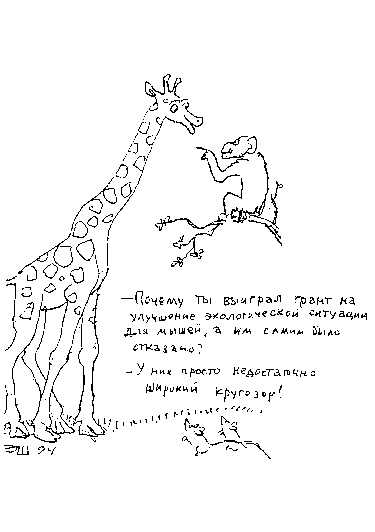 — Почему ты выиграл грант на
улучшение экологической ситуации
для мышей, а им самим было
отказано?
— У них просто недостаточно
широкий кругозор!
ЭШ 94